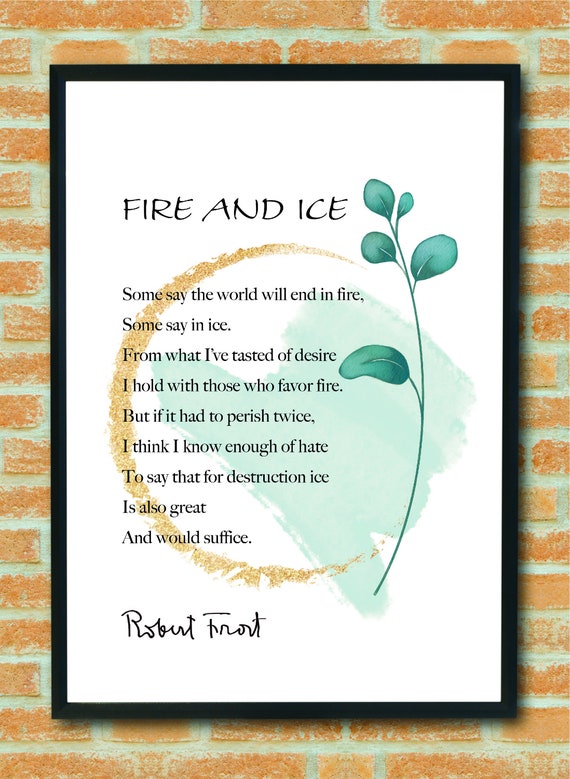 FIRE AND ICE
Some say the world will end in fire,
Some say in ice.
From what I've tasted of desire
I hold with those who favor fire.
But if it had to perish twice,
I think I know enough of hate
To say that for destruction ice
Is also great
And would suffice.
Robert Frost